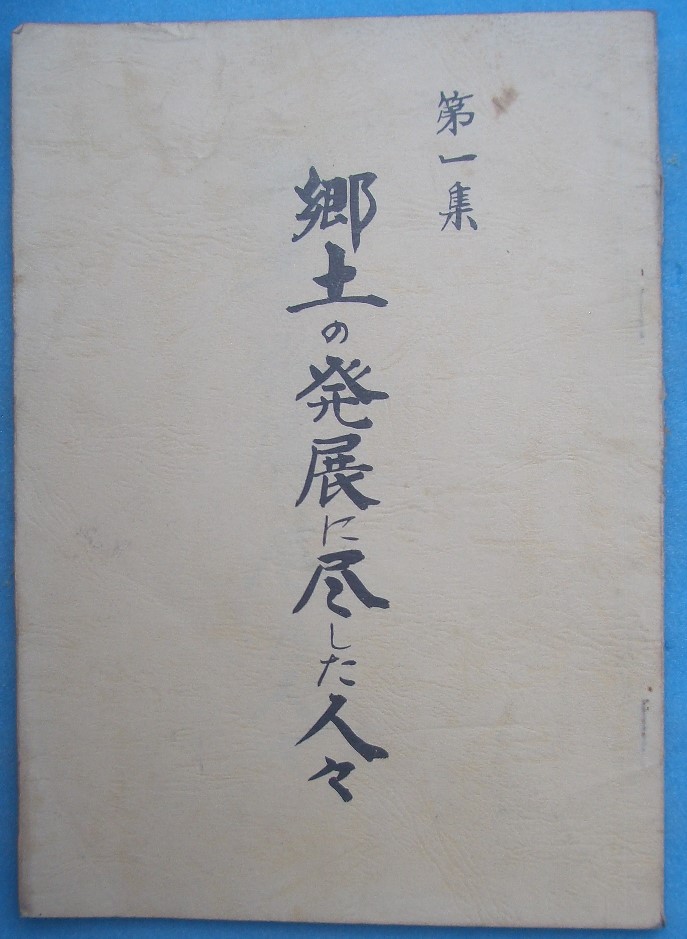 第一集
郷土の発展に尽した人々